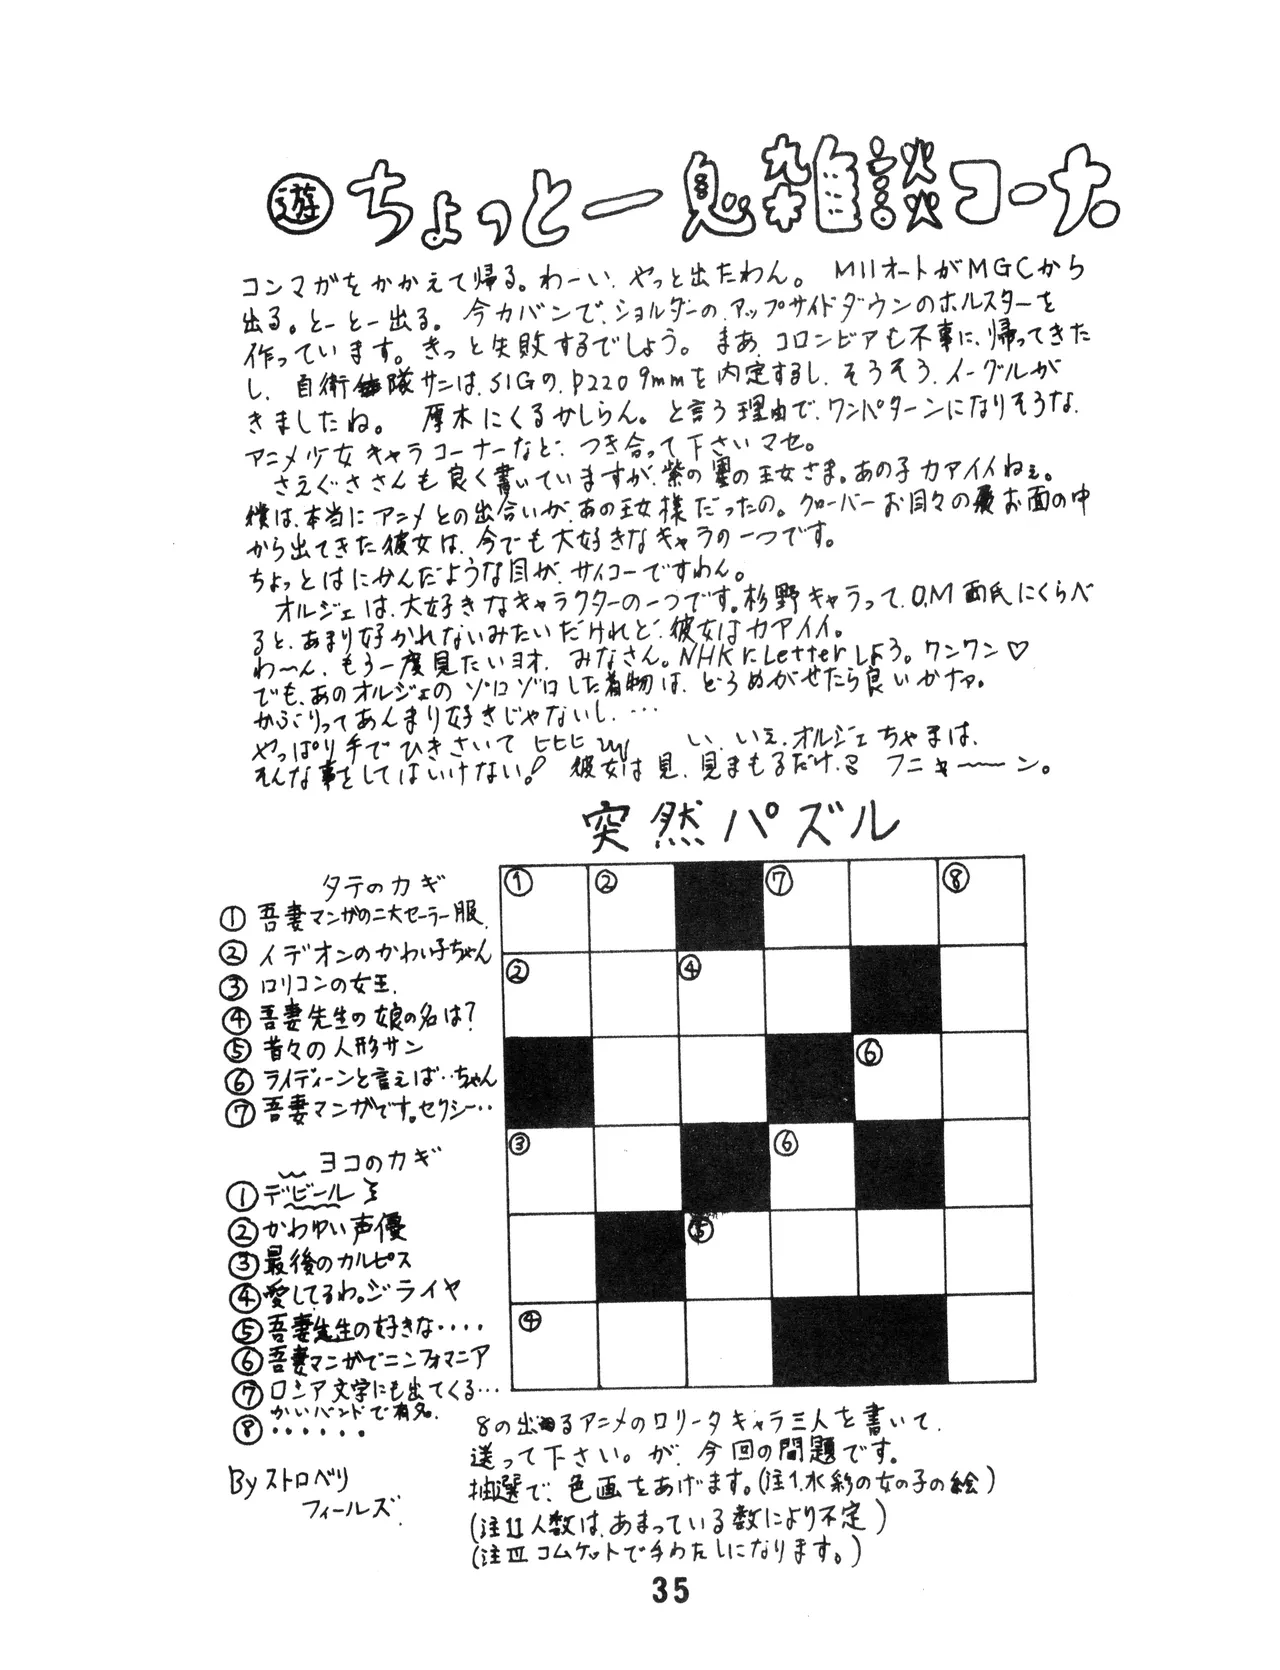 遊 ちょっと一息雑談コーナ。
コンマガをかかえて帰る。わーい、やっと出たわん。 M11オートがMGCから
出る。とーとー出る。 今カバンで、ショルダーの、アップサイドダウンのホルスターを
作っています。きっと失敗するでしょう。 まあ、コロンビアも不事に、帰ってきた
し、自衛隊サンは、SIGの、P220 9mmを内定するし、そろそろ、イーグルが
きましたね。 厚木にくるかしらん。と言う理由で、ワンパターンになりそうな、
アニメ少女キャラコーナーなど、つき合って下さいマセ。
さえぐささんも良く書いていますが、紫の星の王女さま。あの子カアイイねぇ。
僕は、本当にアニメとの出合いが、あの王女様だったの。クローバーお目々のお面の中
から出てきた彼女は、今でも大好きなキャラの一つです。
ちょっとはにかんだような目が、サイコーですわん。
オルジェは、大好きなキャラクターの一つです。杉野キャラって、O.M両氏にくらべ
ると、あまり好かれないみたいだけれど、彼女はカアイイ。
わ〜ん、もう一度見たいヨオ、みなさん。NHKにLetterしよう。ワンワン♡
でも、あのオルジェの ゾロゾロした着物は、どうめがせたら良いかナァ。
かぶりってあんまり好きじゃないし、…
やっぱり手でひきさいて ヒヒヒ い、いえ、オルジェちゃまは、
そんな事をしてはいけない! 彼女は見、見まもるだけ、 フニャ〜〜ン。
突然パズル
タテのカギ
① 吾妻マンガの二大セーラー服、
② イデオンのかわい子ちゃん
③ ロリコンの女王、
④ 吾妻先生の娘の名は?
⑤ 昔々の人形サン
⑥ ライディーンと言えば‥ちゃん
⑦ 吾妻マンガです。セクシー‥
ヨコのカギ
① デビール
② かわゆい声優
③ 最後のカルピス
④ 愛してるわ。ジライヤ
⑤ 吾妻先生の好きな‥‥
⑥ 吾妻マンガでニンフォマニア
⑦ ロシア文学にも出てくる…
かいバンドで有名、
⑧ ‥‥‥
By ストロベリ
フィールズ
① ② ⑦ ⑧
② ④
⑥
③ ⑥
⑤
④
8の出るアニメのロリータキャラ三人を書いて、
送って下さい。が、今回の問題です。
抽選で、色画をあげます。(注I、水彩の女の子の絵)
(注II 人数は、あまっている数により不定)
(注III コムケットで手わたしになります。)
35